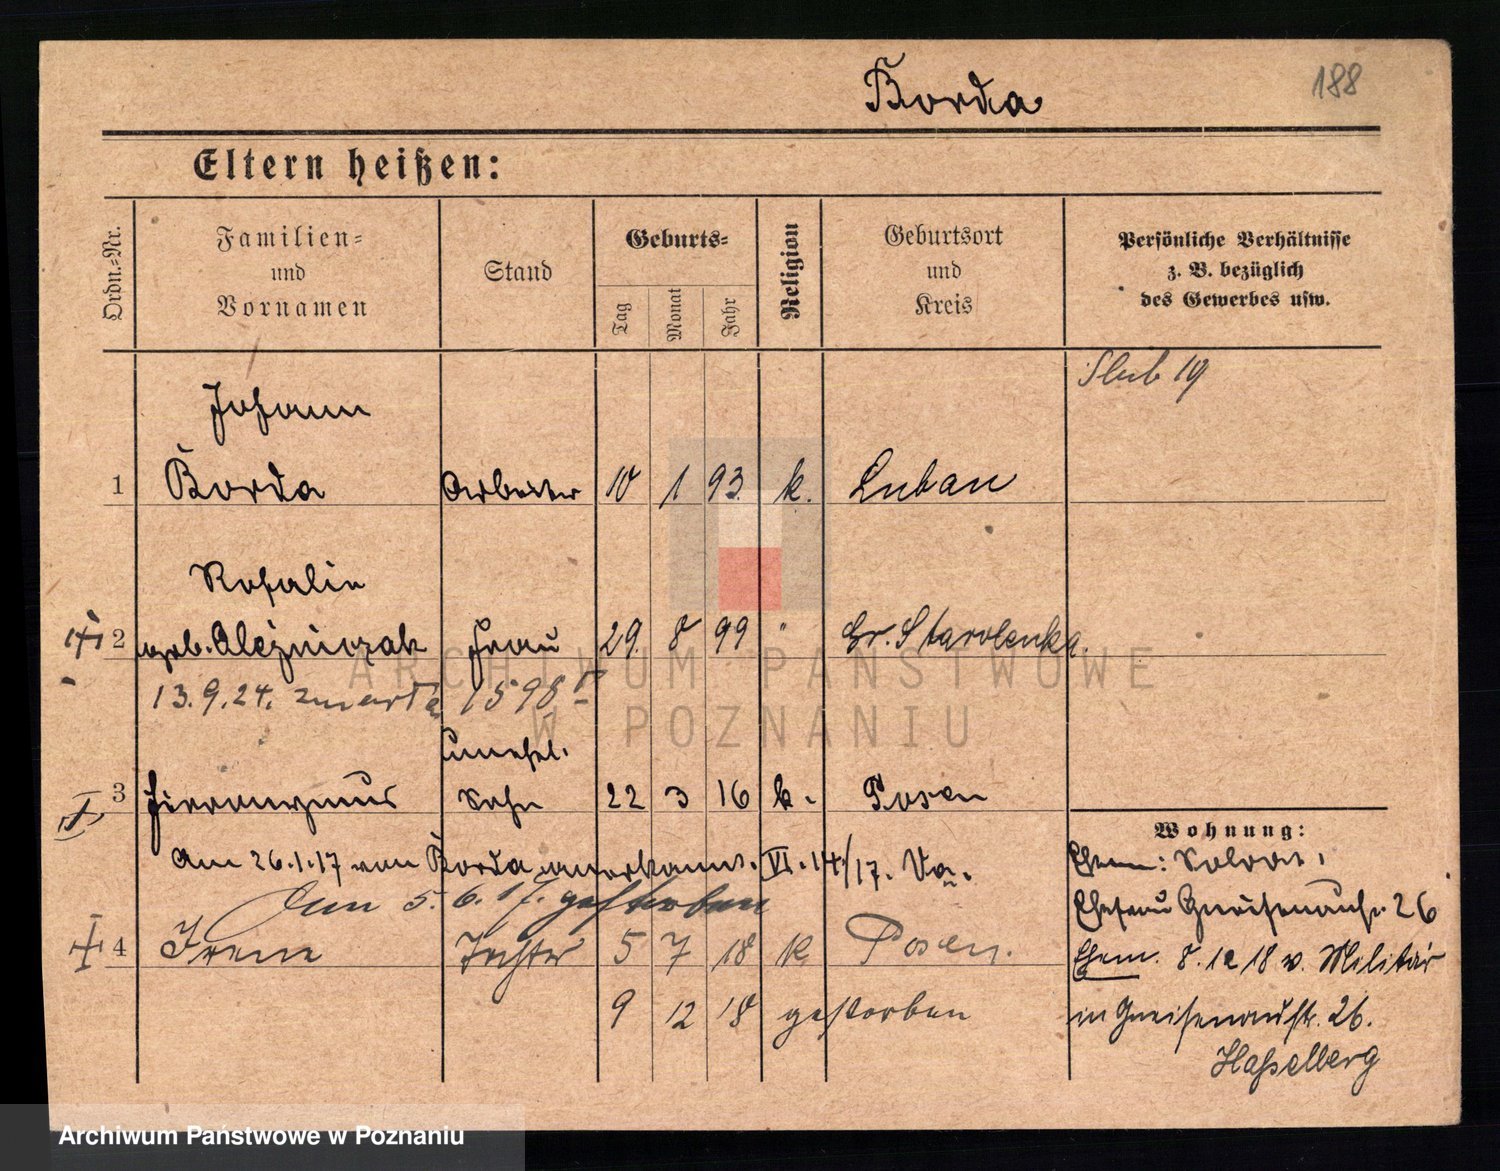 Borda
188
Eltern heißen:
Ordn.=Nr.
Familien=
und
Vornamen
Stand
Geburts=
Tag
Monat
Jahr
Religion
Geburtsort
und
Kreis
Persönliche Verhältnisse
z. B. bezüglich
des Gewerbes usw.
Slub 19
Johann
1 Borda Arbeiter 10 1 93 k. Luban
Rosalie
2 geb. Aleźniczak Frau 29. 8 99 " Gr. Starolenka.
13.9.24. zmarła 1598
unehel.
3 Hieronymus Sohn 22 3 16 k. Posen
Am 26.1.17 von Borda anerkannt. VI. 14/17.
Am 5.6.17. gestorben
4 Irene Tochter 5 7 18 k Posen.
9 12 18 gestorben
Wohnung:
Ehem: Soldat,
Ehefrau Gneisenaustr. 26
Ehem. 8.12 18 v. Militär
in Gneisenaustr. 26.
Haßelberg
ARCHIWUM PAŃSTWOWE
W POZNANIU
Archiwum Państwowe w Poznaniu